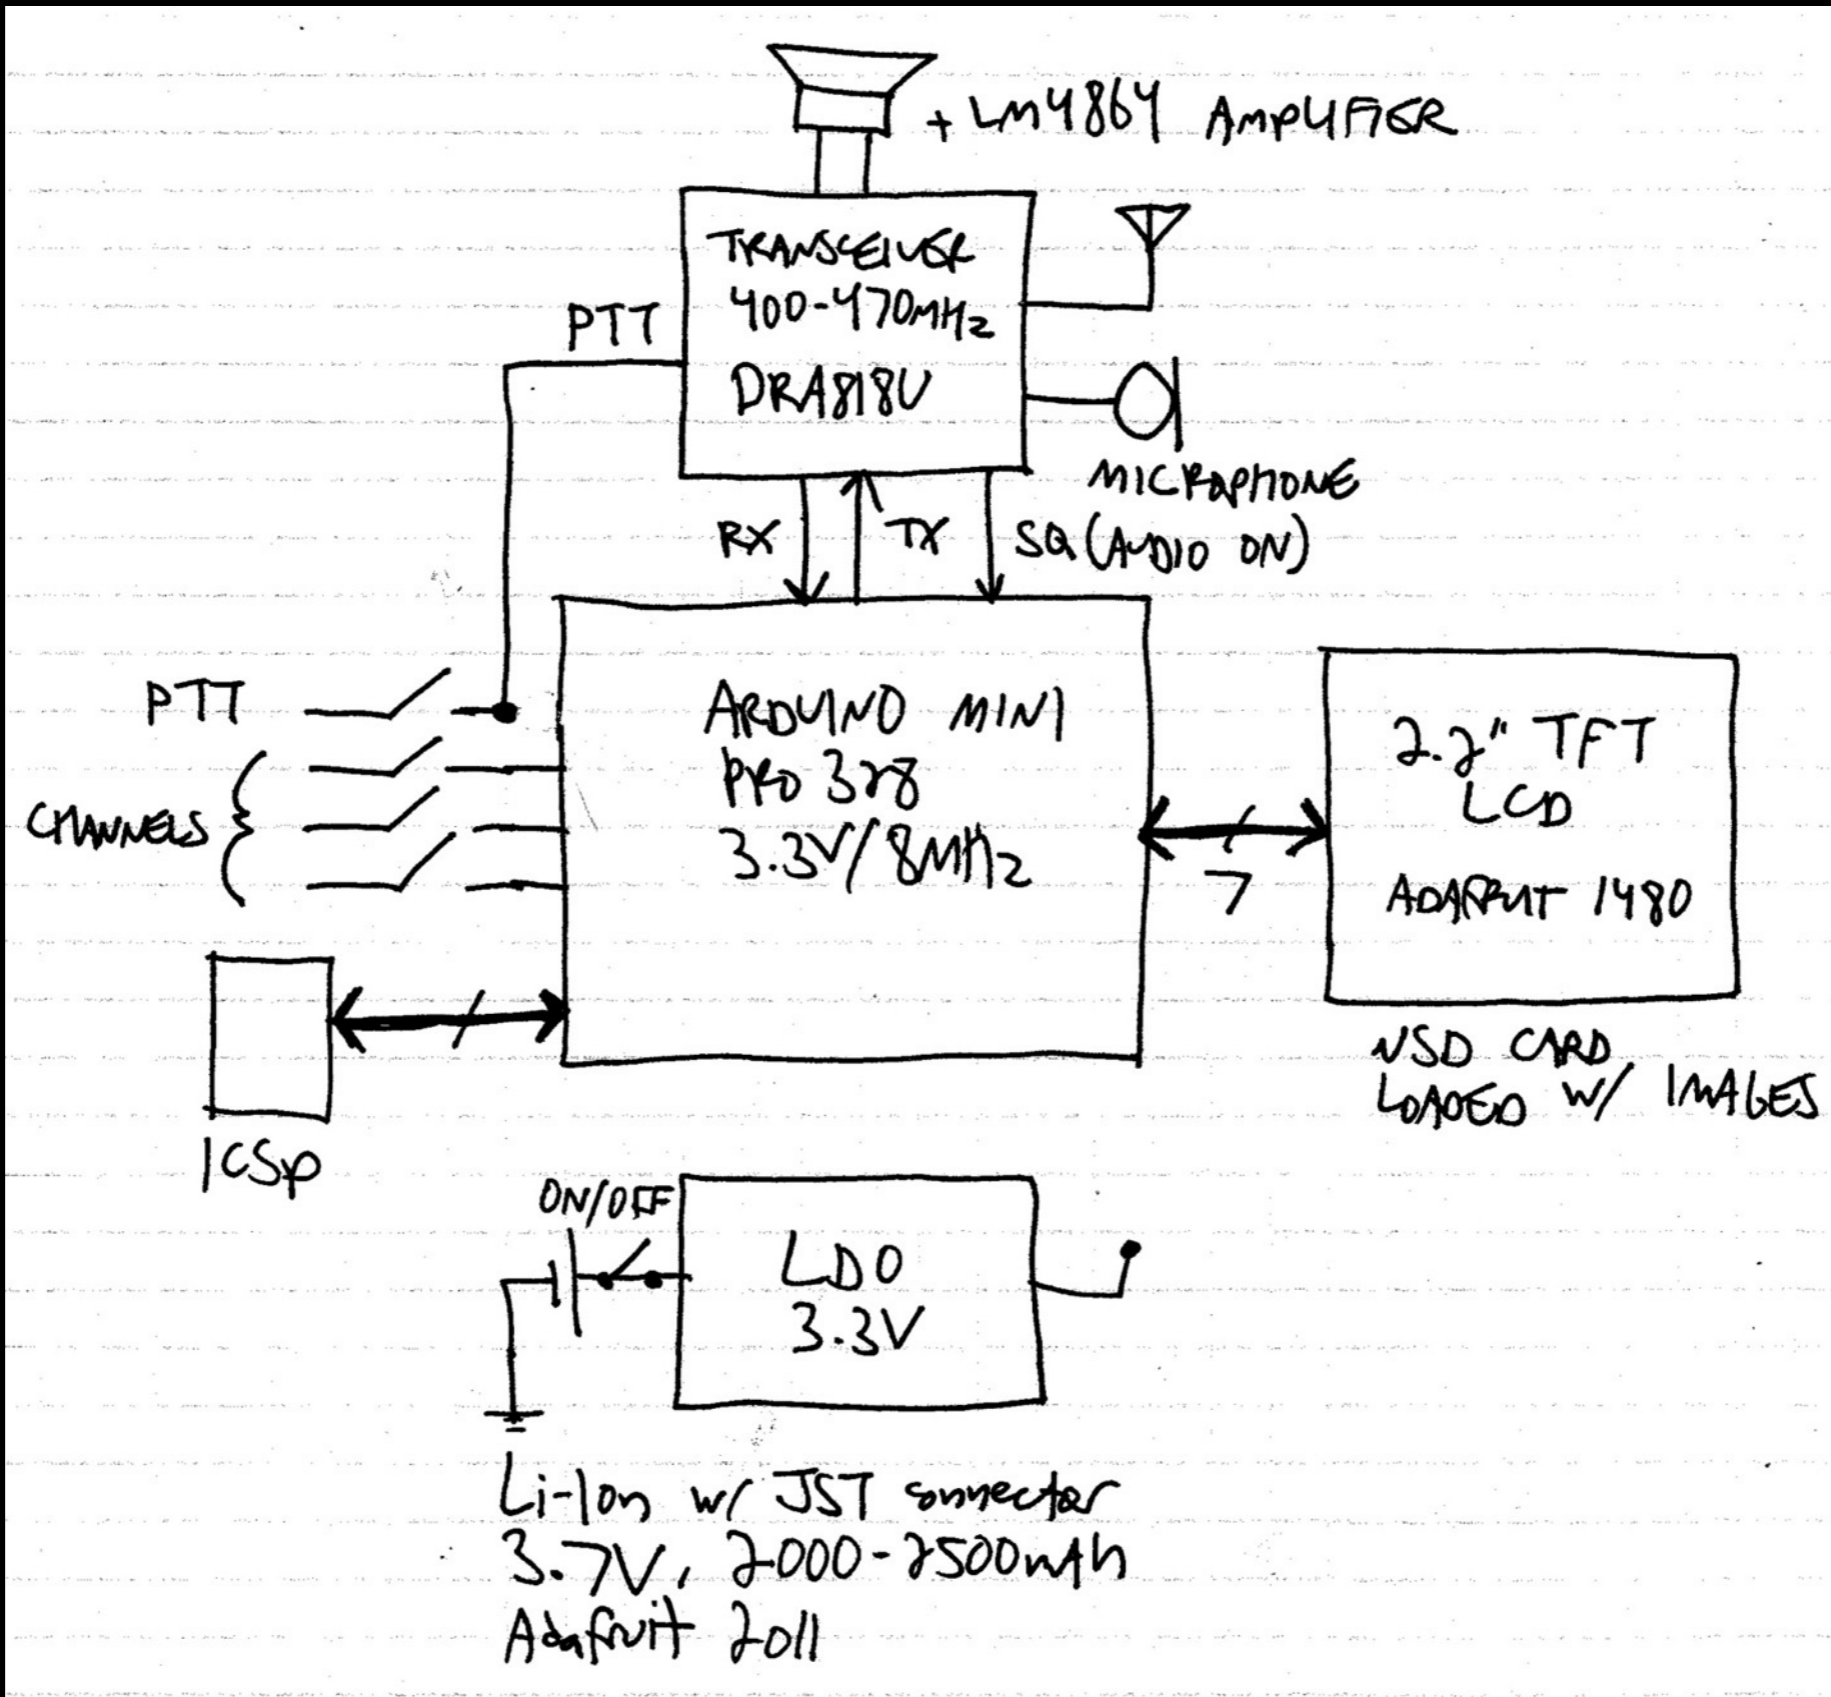 + LM4864 AMPLIFIER
TRANSCEIVER
400-470MHz
DRA818U
PTT
MICROPHONE
RX
TX
SQ (AUDIO ON)
PTT
CHANNELS
ARDUINO MINI
PRO 328
3.3V/8MHz
7
2.2" TFT
LCD
ADAFRUIT 1480
USD CARD
LOADED W/ IMAGES
ICSP
ON/OFF
LDO
3.3V
Li-Ion w/ JST connector
3.7V, 2000-2500mAh
Adafruit 2011